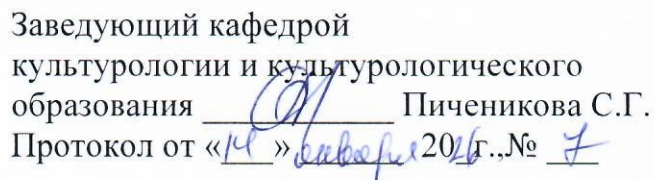 Заведующий кафедрой
культурологии и культурологического
образования ____________ Пиченикова С.Г.
Протокол от «14» января 2026г.,№ 7